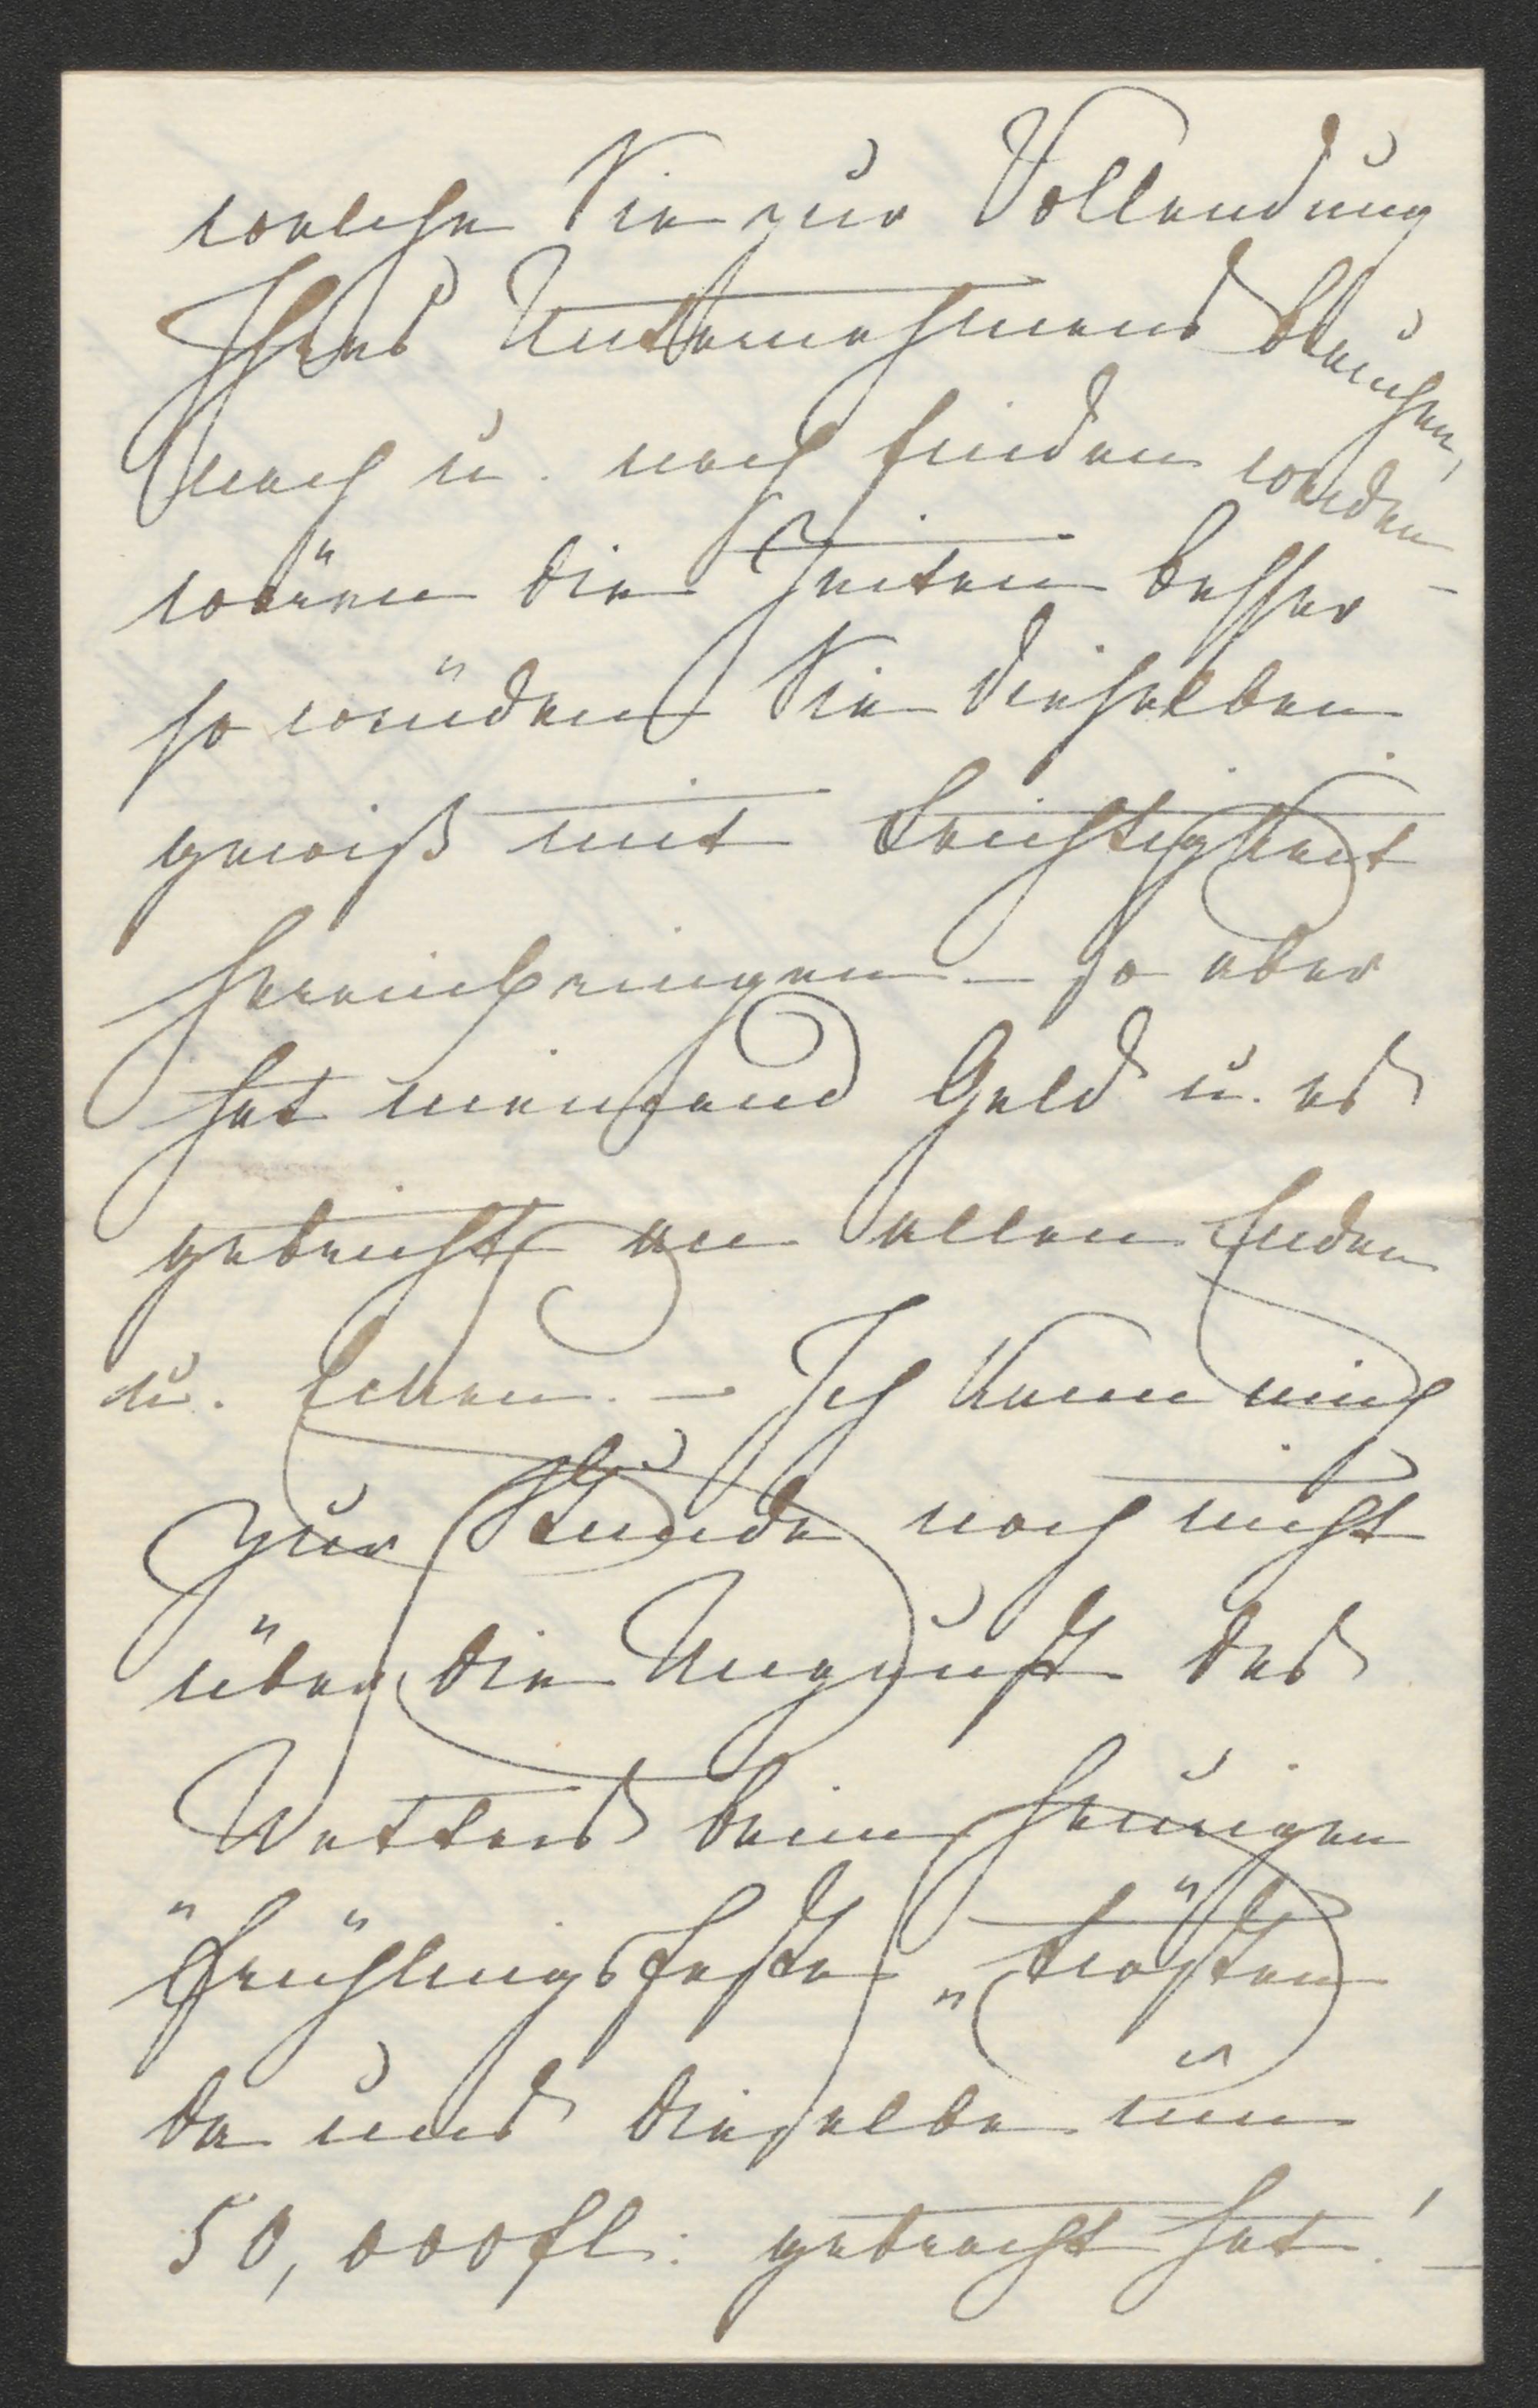 welche Sie zur Vollendung
Ihres Unternehmens brauchen,
nach u. nach finden werden
wären die Zeiten besser –
so würden Sie dieselben
gewiß mit Leichtigkeit
hereinbringen – so aber
hat niemand Geld u. es
gebricht an allen Enden
u. Ecken. – Ich kann mich
zur Stunde noch nicht
über die Ungunst des
Wetters beim heurigen
"Frühlingsfeste" trösten
da uns dieselbe um
50,000 fl: gebracht hat! –